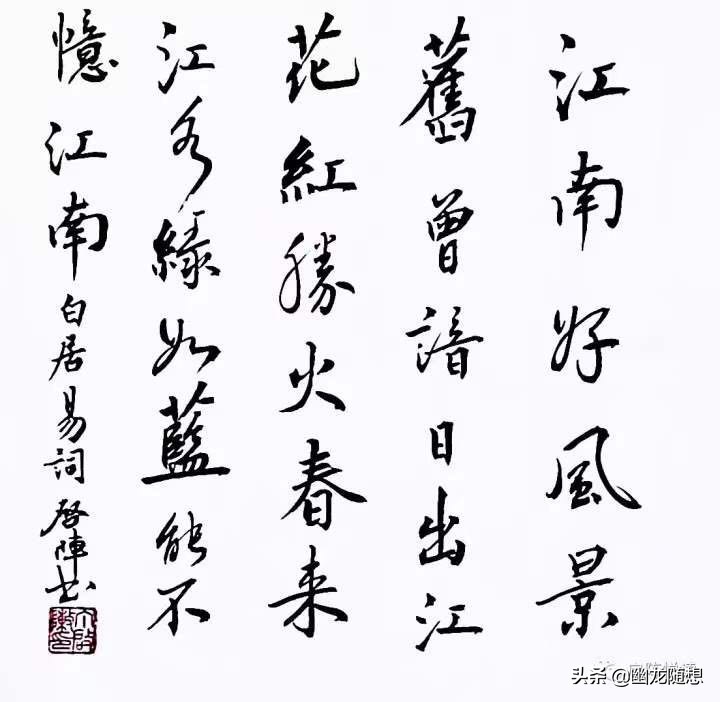 江南好風景
舊曾諳日出江
花紅勝火春来
江水緑如藍能不
憶江南白居易詞啓陣书
头条@幽龙随想